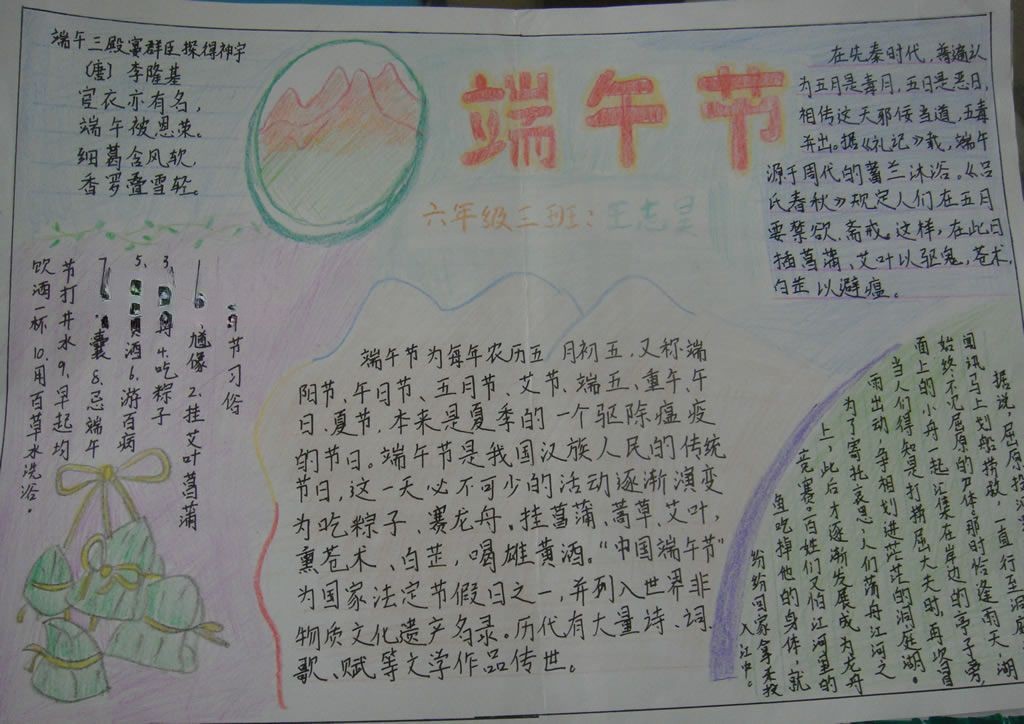 端午三殿宴群臣探得神字
(唐) 李隆基
宫衣亦有名，
端午被恩荣。
细葛含风软，
香罗叠雪轻。
端午节
六年级三班：王志昊
在先秦时代，普遍认
为五月是毒月，五日是恶日，
相传这天邪佞当道，五毒
并出。据《礼记》载，端午
源于周代的蓄兰沐浴。《吕
氏春秋》规定人们在五月
要禁欲、斋戒。这样，在此日
插菖蒲、艾叶以驱鬼，苍术，
白芷以避瘟。
节习俗
像 2、挂艾叶菖蒲
3、舟 4、吃粽子
5、酒 6、游百病
7、囊 8、忌端午
节打井水 9、早起均
饮酒一杯 10、用百草水洗浴。
端午节为每年农历五 月初五，又称端
阳节、午日节、五月节、艾节、端五、重午、午
日、夏节，本来是夏季的一个驱除瘟疫
的节日。端午节是我国汉族人民的传统
节日，这一天必不可少的活动逐渐演变
为吃粽子、赛龙舟、挂菖蒲、蒿草、艾叶，
熏苍术、白芷，喝雄黄酒。“中国端午节”
为国家法定节假日之一，并列入世界非
物质文化遗产名录。历代有大量诗、词、
歌、赋等文学作品传世。
据说，屈原投
闻讯马上划船捞救，一直行至洞庭
始终不见屈原的尸体。那时恰逢雨天，湖
面上的小舟一起汇集在岸边的亭子旁，
当人们得知是打捞屈大夫时，再次冒
雨出动，争相划进茫茫的洞庭湖。
为了寄托哀思，人们荡舟江河之
上，此后才逐渐发展成为龙舟
竞赛。百姓们又怕江河里的
鱼吃掉他的身体，就
纷纷回家拿来
入江中。